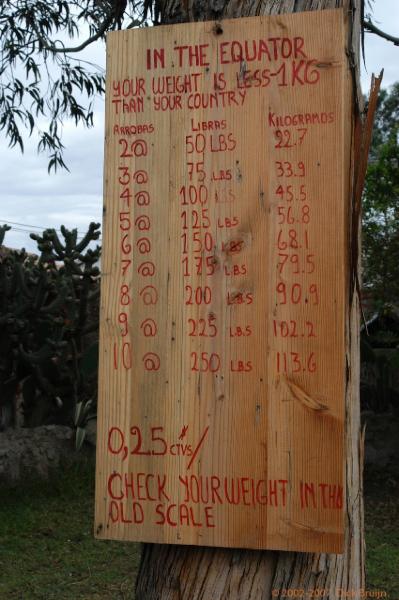 IN THE EQUATOR
YOUR WEIGHT IS LESS-1KG
THAN YOUR COUNTRY
ARROBAS LIBRAS KILOGRAMOS
2@ 50 LBS 22.7
3@ 75 LBS 33.9
4@ 100 LBS 45.5
5@ 125 LBS 56.8
6@ 150 LBS 68.1
7@ 175 LBS 79.5
8@ 200 LBS 90.9
9@ 225 LBS 102.2
10@ 250 LBS 113.6
0,25 CTVS/
CHECK YOUR WEIGHT IN THE
OLD SCALE
© 2002-2007 Dick Bruijn